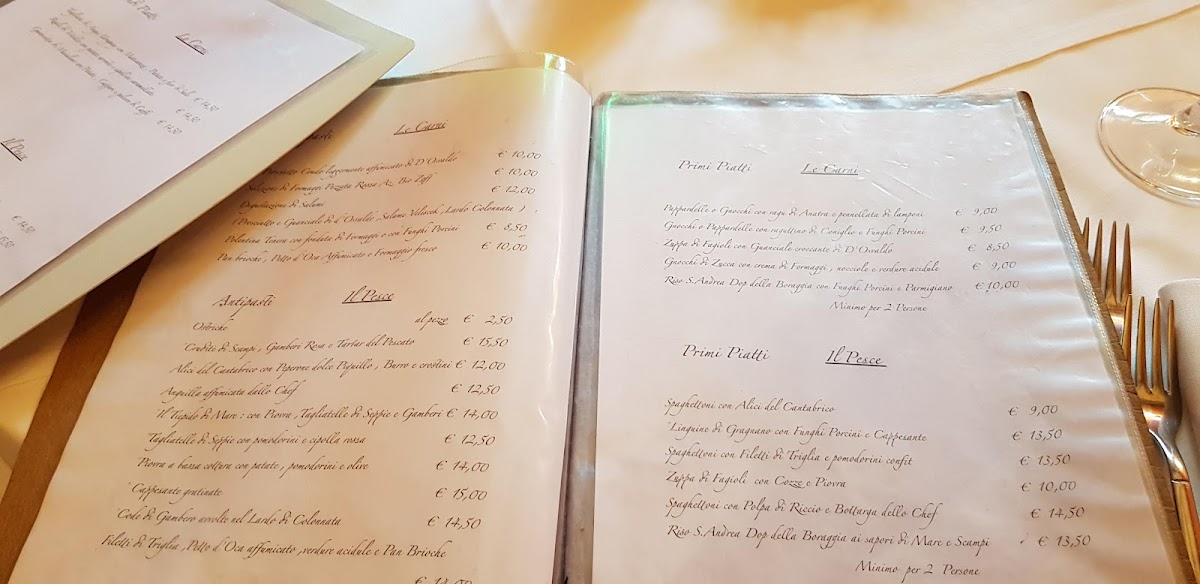 di Piatti
Le Carni
€ 14,50
€ 14,50
€ 14,50
Il Pesce
Le Carni
Prosciutto Crudo leggermente affumicato di D'Osvaldo € 10,00
Selezione di Formaggi Pezzata Rossa Az. Bio Zoff € 10,00
Degustazione di Salumi € 12,00
( Prosciutto e Guanciale di d'Osvaldo, Salame Veliscek, Lardo Colonnata ) ,
Polentina Tenera con fonduta di Formaggi e con Funghi Porcini € 8,50
Pan brioche , Petto d'Oca Affumicato e Formaggio fresco € 10,00
Antipasti Il Pesce
Ostriche al pezzo € 2,50
*Crudità di Scampi , Gambero Rosa e Tartar del Pescato € 15,50
Alici del Cantabrico con Peperone dolce Piquillo , Burro e crostini € 12,00
Anguilla affumicata dallo Chef € 12,50
Il Tiepido di Mare : con Piovra ,Tagliatelle di Seppie e Gamberi € 14,00
Tagliatelle di Seppie con pomodorini e cipolla rossa € 12,50
*Piovra a bassa cottura con patate , pomodorini e olive € 14,00
*Cappesante gratinate € 15,00
*Code di Gambero avvolte nel Lardo di Colonnata € 14,50
Filetti di Triglia ,Petto d'Oca affumicato ,verdure acidule e Pan Brioche
€ 14,00
Primi Piatti Le Carni
Pappardelle o Gnocchi con ragù di Anatra e pennellata di lamponi € 9,00
Gnocchi o Pappardelle con raguttino di Coniglio e Funghi Porcini € 9,50
Zuppa di Fagioli con Guanciale croccante di D'Osvaldo € 8,50
Gnocchi di Zucca con crema di Formaggi , nocciole e verdure acidule € 9,00
Riso S.Andrea Dop della Baraggia con Funghi Porcini e Parmigiano € 10,00
Minimo per 2 Persone
Primi Piatti Il Pesce
Spaghettoni con Alici del Cantabrico € 9,00
*Linguine di Gragnano con Funghi Porcini e Cappesante € 13,50
Spaghettoni con Filetti di Triglia e pomodorini confit € 13,50
Zuppa di Fagioli con Cozze e Piovra € 10,00
Spaghettoni con Polpa di Riccio e Bottarga dello Chef € 14,50
Riso S.Andrea Dop della Boraggia ai sapori di Mare e Scampi € 13,50
Minimo per 2 Persone